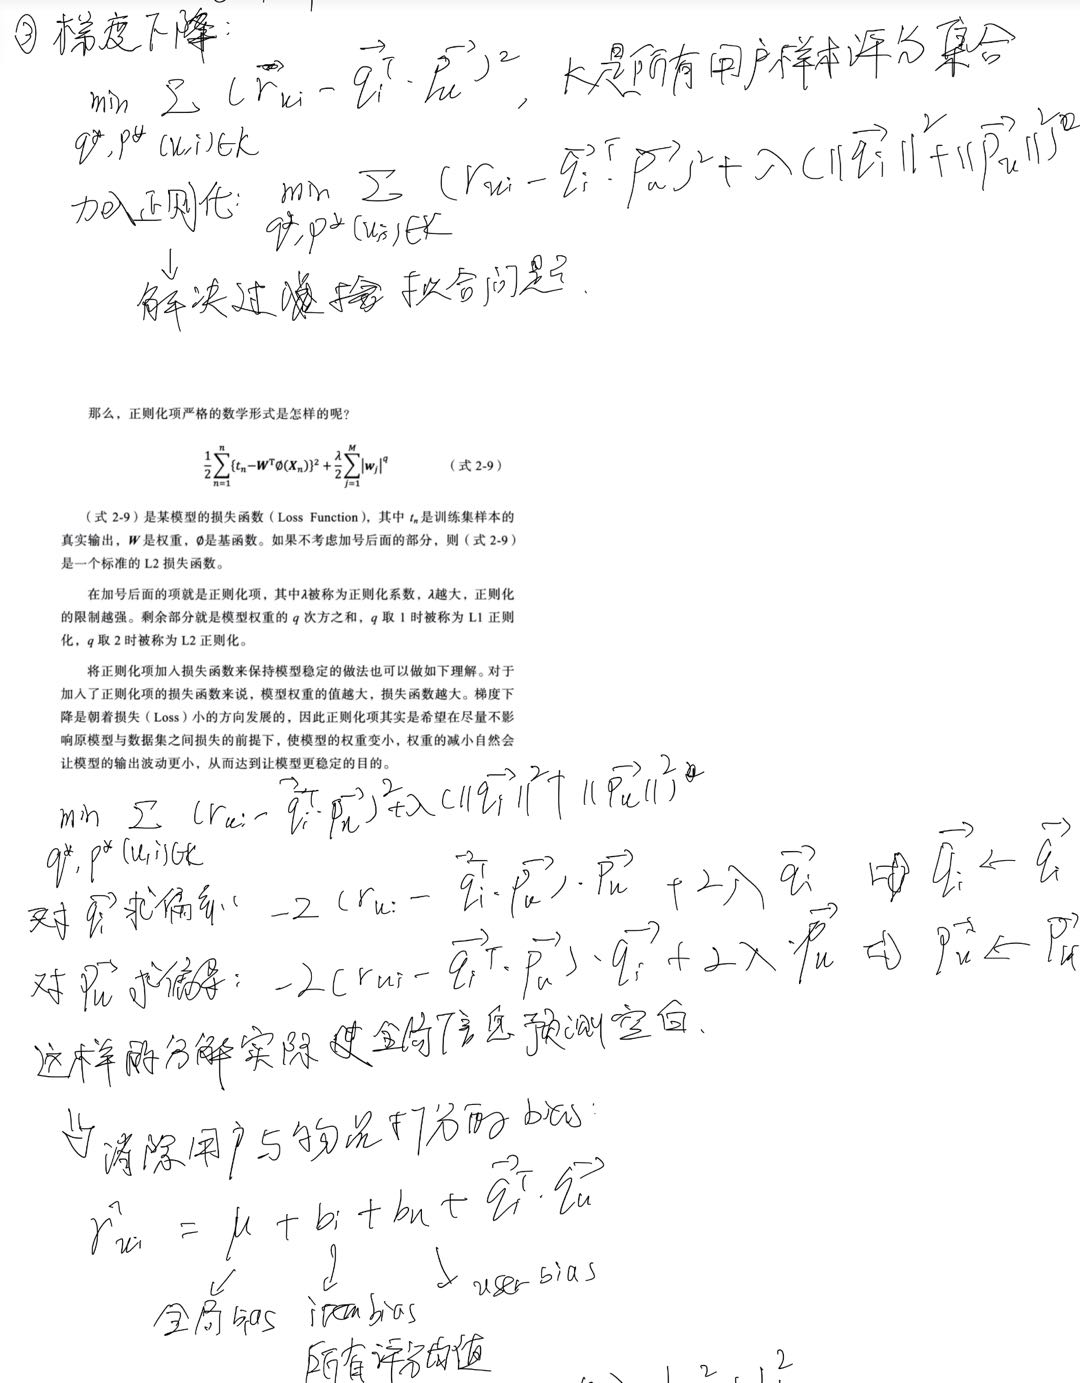 ③ 梯度下降:
min Σ (r_ui - q_i^T · p_u)^2, K是所有用户样本评分集合
q*, p* (u,i)∈K
加入正则化: min Σ (r_ui - q_i^T · p_u)^2 + λ(||q_i||^2 + ||p_u||)^2
q*, p* (u,i)∈K
↓
解决过拟合问题.
那么，正则化项严格的数学形式是怎样的呢？
1/2 Σ_{n=1}^{n} {t_n−W^Tø(X_n)}^2 + λ/2 Σ_{j=1}^{M} |w_j|^q （式 2-9）
（式 2-9）是某模型的损失函数（Loss Function），其中 t_n 是训练集样本的
真实输出，W 是权重，Ø是基函数。如果不考虑加号后面的部分，则（式 2-9）
是一个标准的 L2 损失函数。
在加号后面的项就是正则化项，其中λ被称为正则化系数，λ越大，正则化
的限制越强。剩余部分就是模型权重的 q 次方之和，q 取 1 时被称为 L1 正则
化，q 取 2 时被称为 L2 正则化。
将正则化项加入损失函数来保持模型稳定的做法也可以做如下理解。对于
加入了正则化项的损失函数来说，模型权重的值越大，损失函数越大。梯度下
降是朝着损失（Loss）小的方向发展的，因此正则化项其实是希望在尽量不影
响原模型与数据集之间损失的前提下，使模型的权重变小，权重的减小自然会
让模型的输出波动更小，从而达到让模型更稳定的目的。
min Σ (r_ui - q_i^T · p_u)^2 + λ(||q_i||^2 + ||p_u||)^2
q*, p* (u,i)∈K
对 q_i 求偏导: -2(r_ui - q_i^T · p_u) · p_u + 2λ q_i ⇨ q_i ← q_i
对 p_u 求偏导: -2(r_ui - q_i^T · p_u) · q_i + 2λ · p_u ⇨ p_u ← p_u
这样的分解实际使全局信息预测空白.
⇩ 消除用户与物品打分的bias:
r̂_ui = μ + b_i + b_u + q_i^T · q_u
user bias
全局bias item bias
所有评分均值